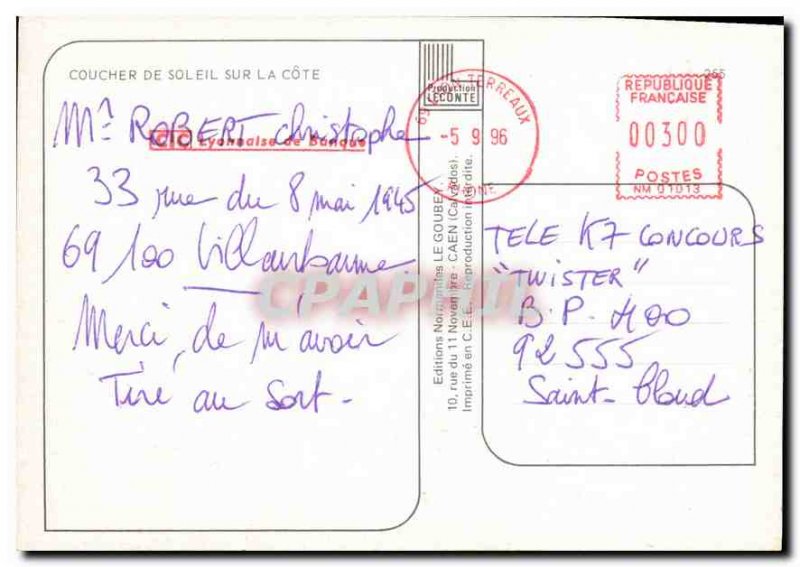 COUCHER DE SOLEIL SUR LA CÔTE
Mr ROBERT Christophe
CIC Lyonnaise de Banque
33 rue du 8 mai 1945
69 100 Villeurbanne
Merci, de m'avoir
Tiré au Sort -
Production
LECONTE
Editions Normandes LE GOUBEY.
10, rue du 11 Novembre - CAEN (Calvados).
Imprimé en C.E.E. Reproduction interdite.
69 LYON TERREAUX
-5 9 96
RHONE
265
REPUBLIQUE
FRANCAISE
00300
POSTES
NM 01013
TELE K7 CONCOURS
"TWISTER"
B.P. 400
92 555
Saint-Cloud
CPAPHIL